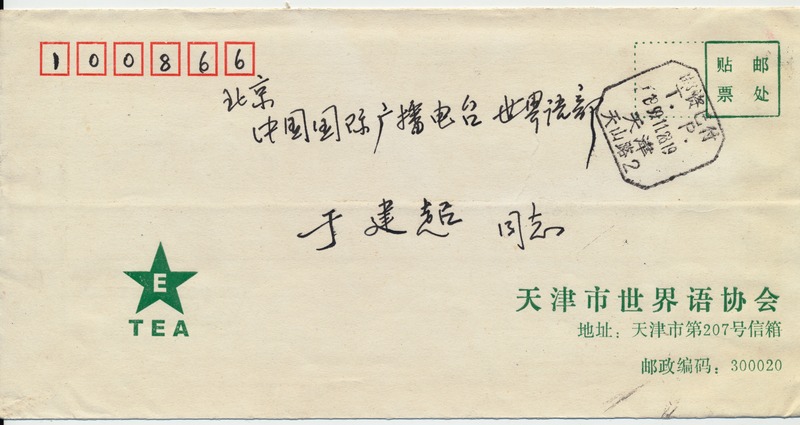 100866
贴 邮
票 处
邮资已付
T. P.
1999.11.26.19
天津
天山路2
北京
中国国际广播电台世界语部
于建超 同志
E
TEA
天津市世界语协会
地址：天津市第207号信箱
邮政编码：300020